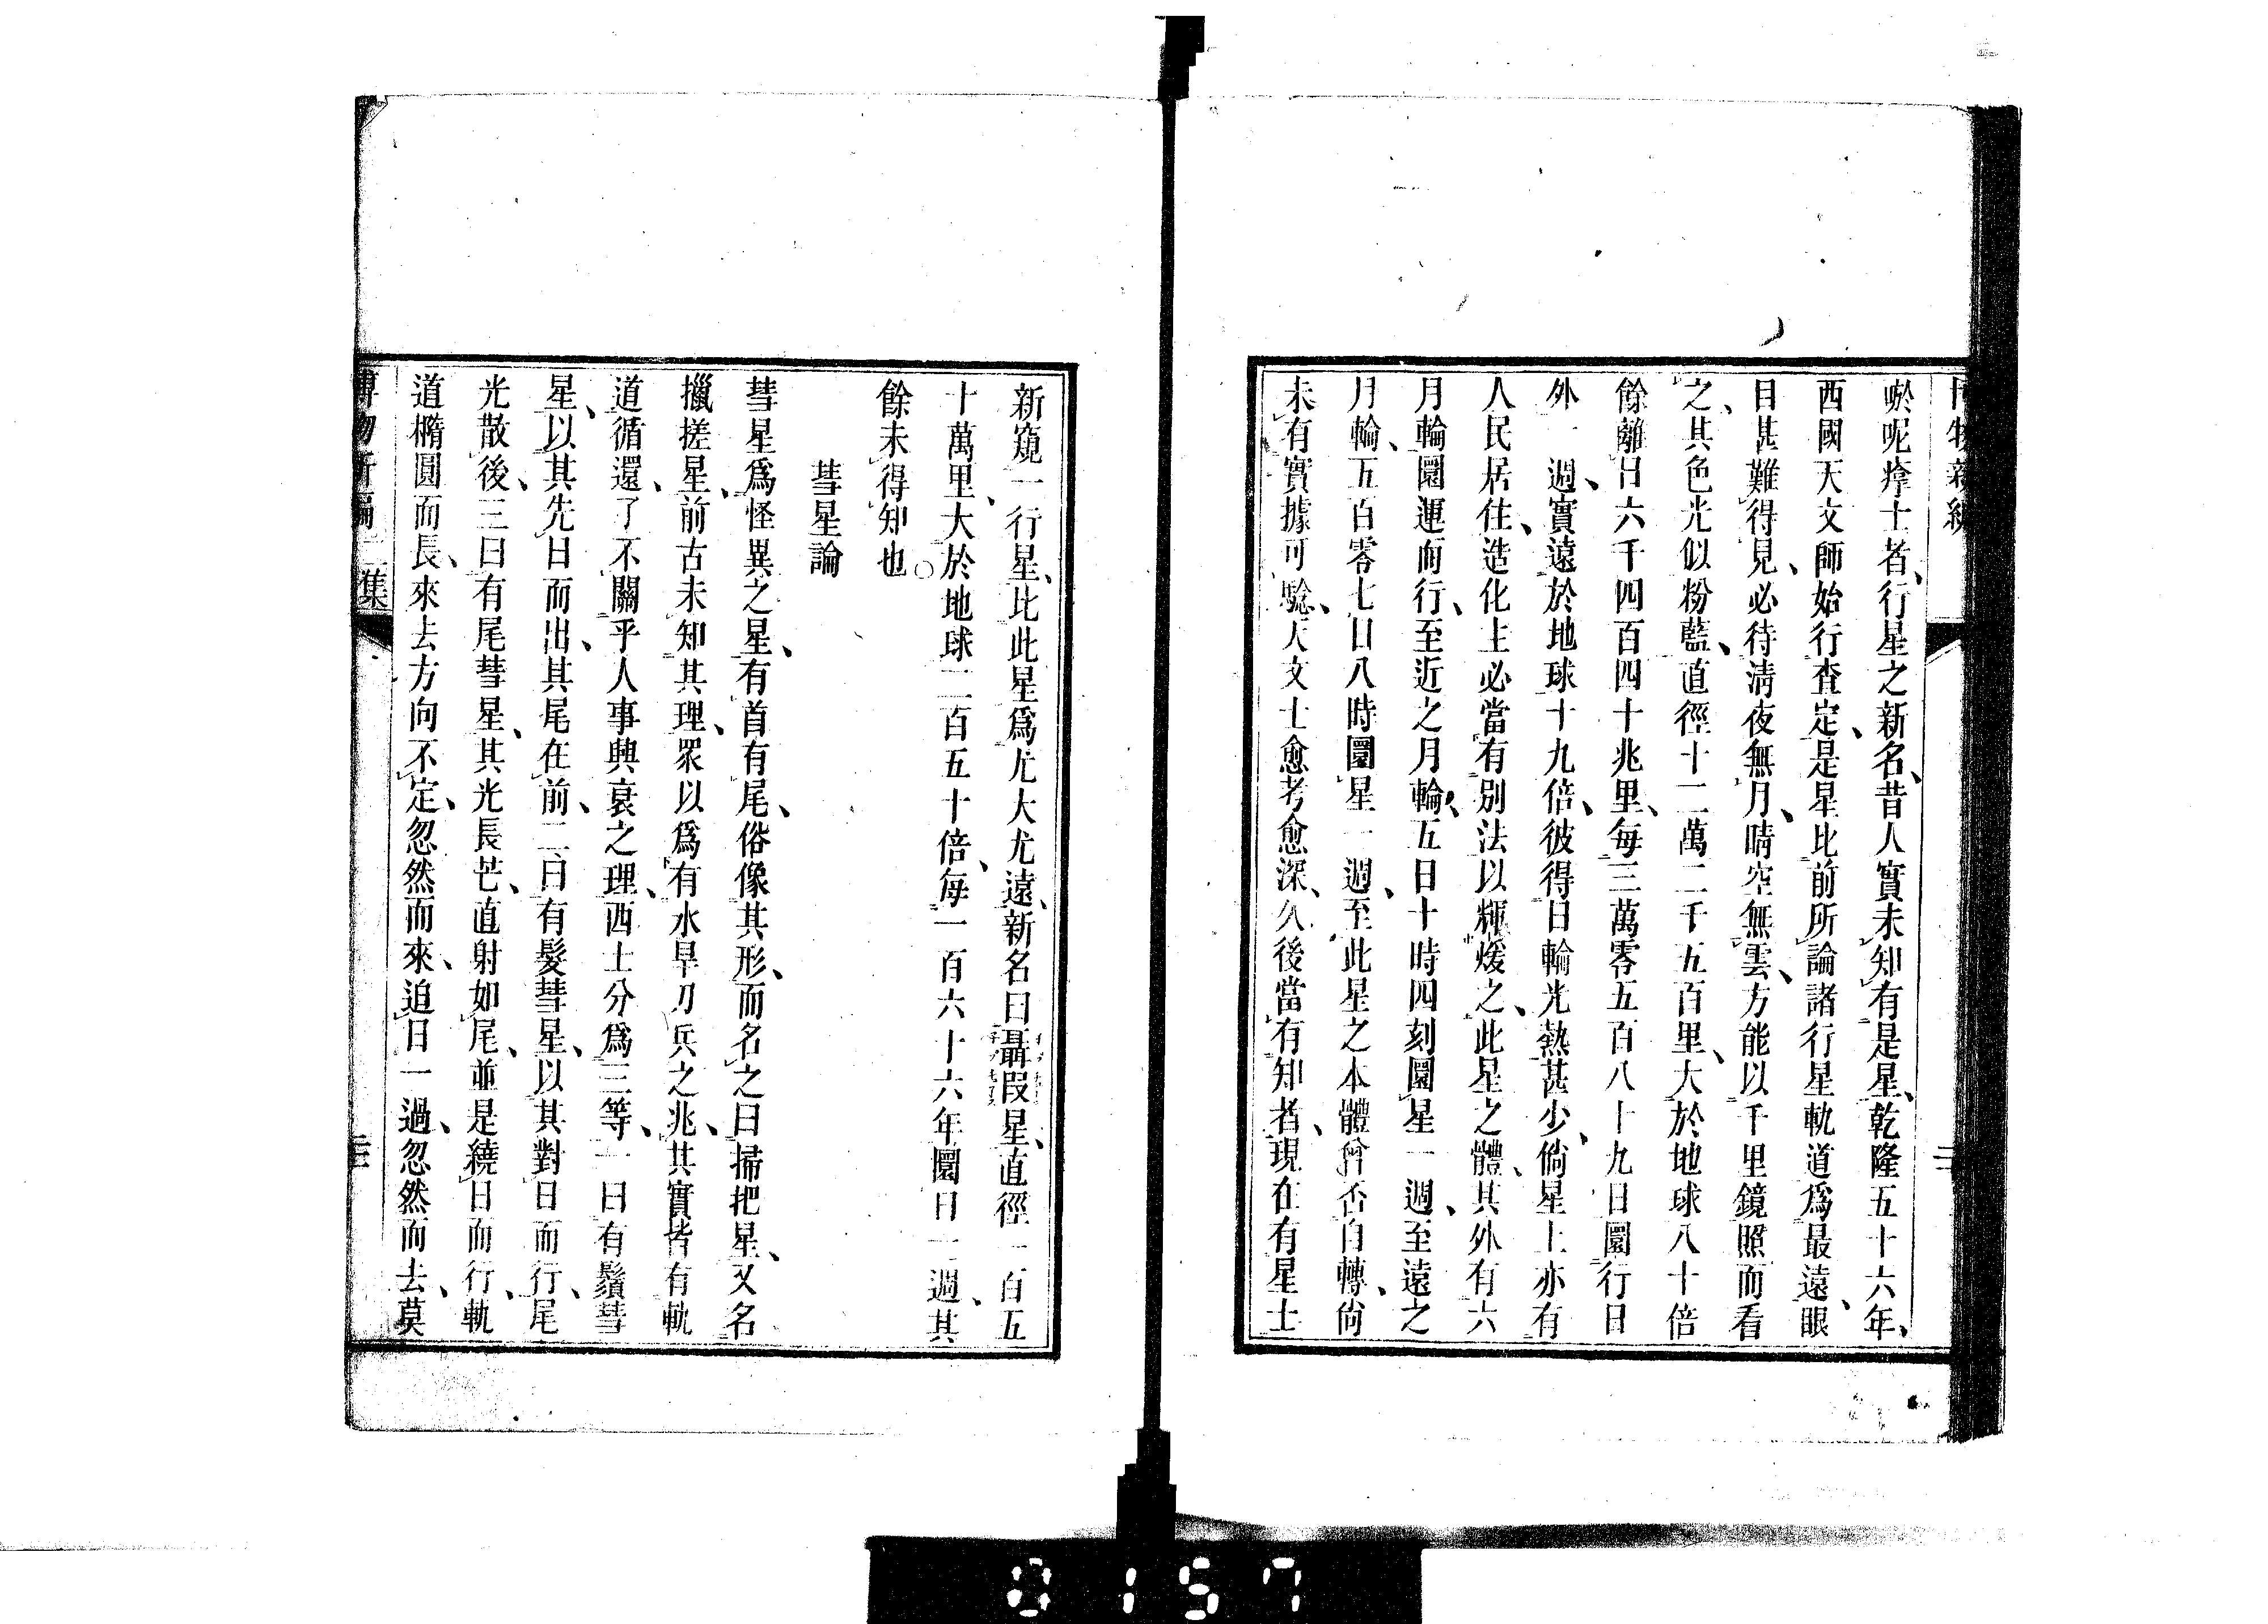 博物新編
唹呢㾕士者、行星之新名、昔人實未知有是星、乾隆五十六年、
西國天文師始行查定、是星比前所論諸行星軌道爲最遠、眼
目甚難得見、必待淸夜無月、晴空無雲、方能以千里鏡照而看
之、其色光似粉藍、直徑十二萬二千五百里、大於地球八十倍
餘、離日六千四百四十兆里、每三萬零五百八十九日圜行日
外一週、實遠於地球十九倍、彼得日輪光熱甚少、倘星上亦有
人民居住、造化主必當有別法以輝煖之、此星之體、其外有六
月輪圜運而行、至近之月輪、五日十時四刻圜星一週、至遠之
月輪、五百零七日八時圜星一週、至此星之本體曾否自轉、尙
未有實據可騐、天文士愈考愈深、久後當有知者、現在有星士
新窺一行星、比此星爲尤大尤遠、新名曰聶段星、直徑一百五
十萬里、大於地球二百五十倍、每一百六十六年圜日一週、其
餘未得知也○
彗星論
彗星爲怪異之星、有首有尾、俗像其形、而名之曰掃把星、又名
攙搓星、前古未知其理、眾以爲有水旱刀兵之兆、其實皆有軌
道循還、了不關乎人事興衰之理、西士分爲三等、一曰有鬚彗
星、以其先日而出、其尾在前、二曰有髮彗星、以其對日而行、尾
光散後、三曰有尾彗星、其光長芒、直射如尾、並是繞日而行、軌
道橢圓而長、來去方向不定、忽然而來、迫日一過、忽然而去、莫
博物新編二集
0157